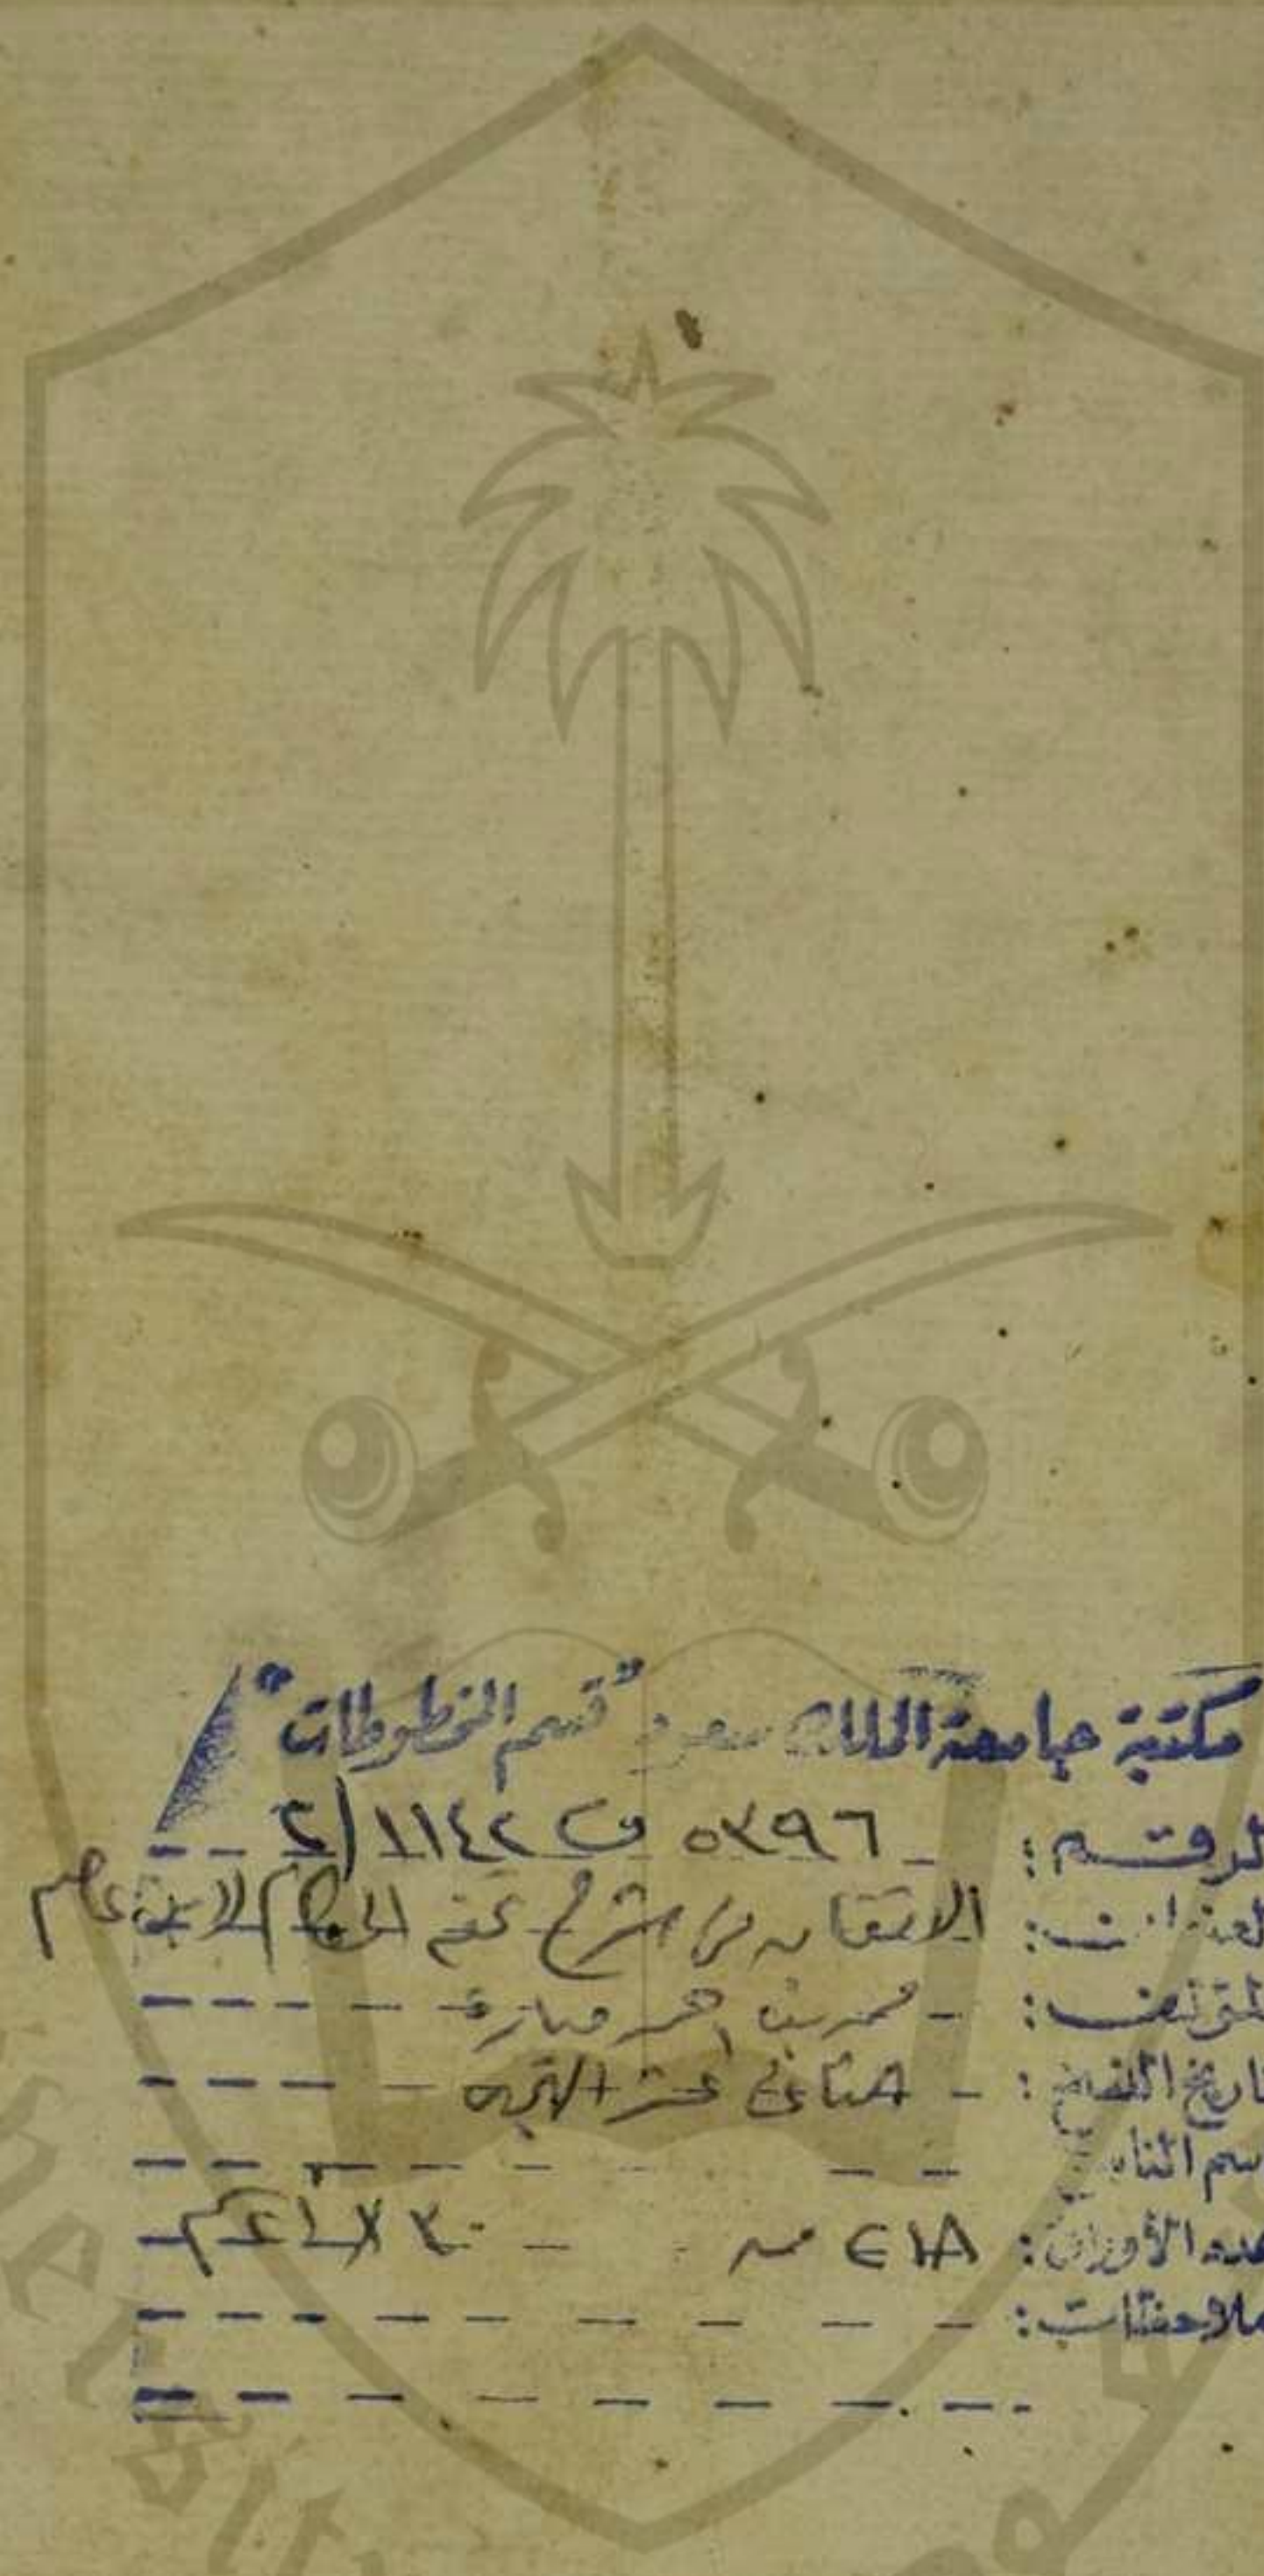 مكتبة جامعة الملك سعود "قسم المخطوطات"
الرقم: ٥٣٩٦ ف ١١٤٢/٢
العنوان: الاتقان من شرح تحفة الحكام لابن عاصم
المؤلف: محمد بن احمد ميارة
تاريخ النسخ: الثاني عشر الهجري
اسم الناسخ:
عدد الأوراق: ٢١٨
ملاحظات: